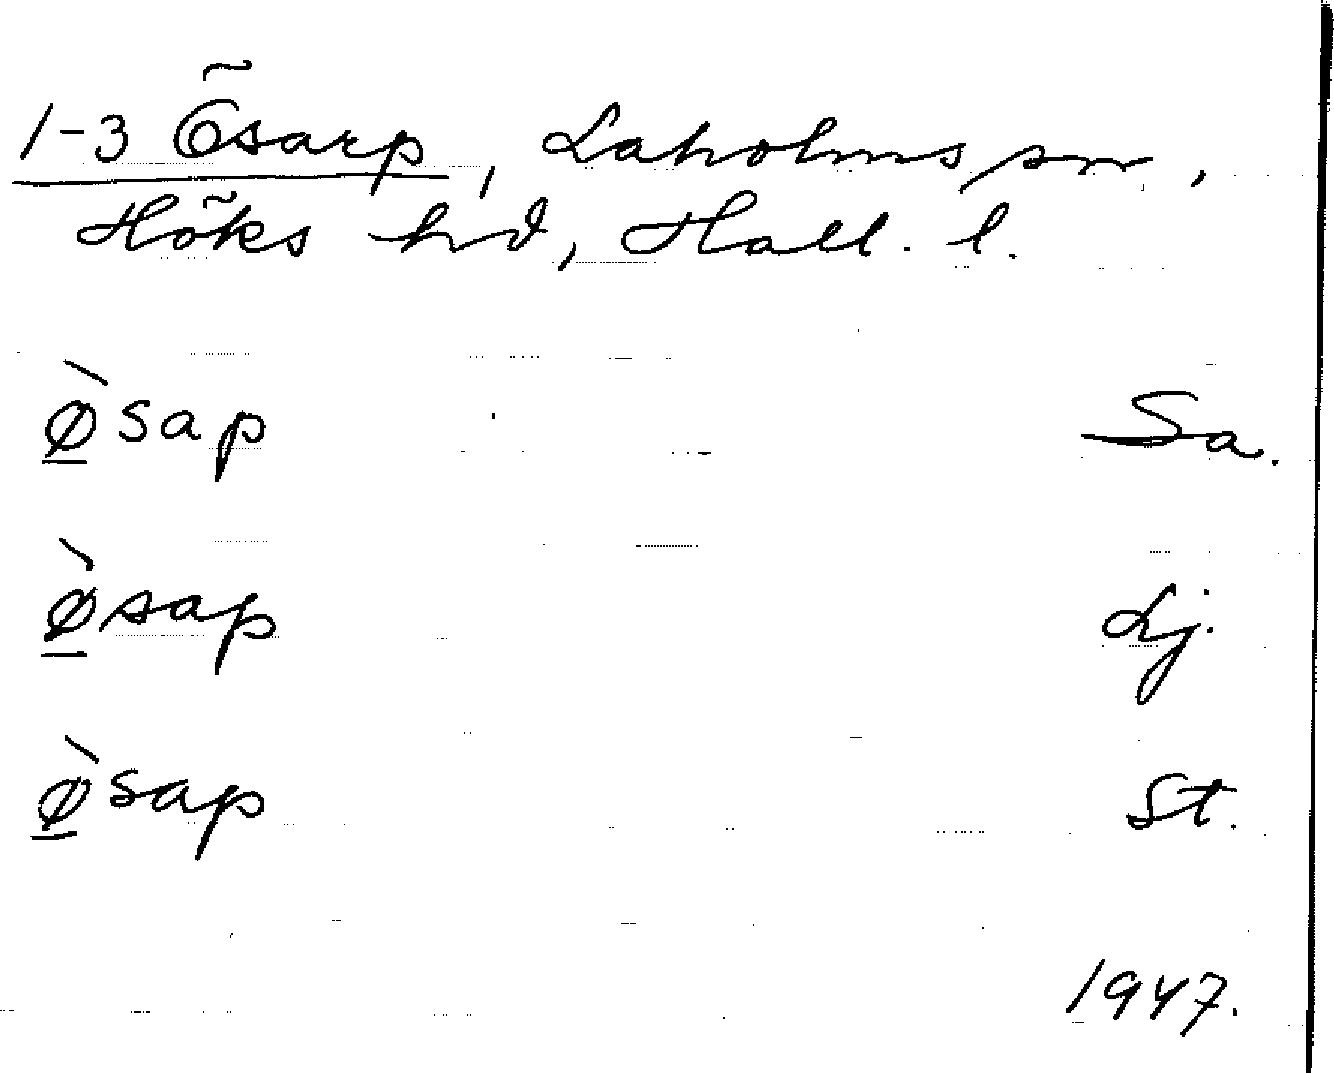 1-3 Ösarp, Laholms sn,
Höks hd, Hall. l.
ø̲̀sap Sa.
ø̲̀sap Lj.
ø̲̀sap St.
1947.